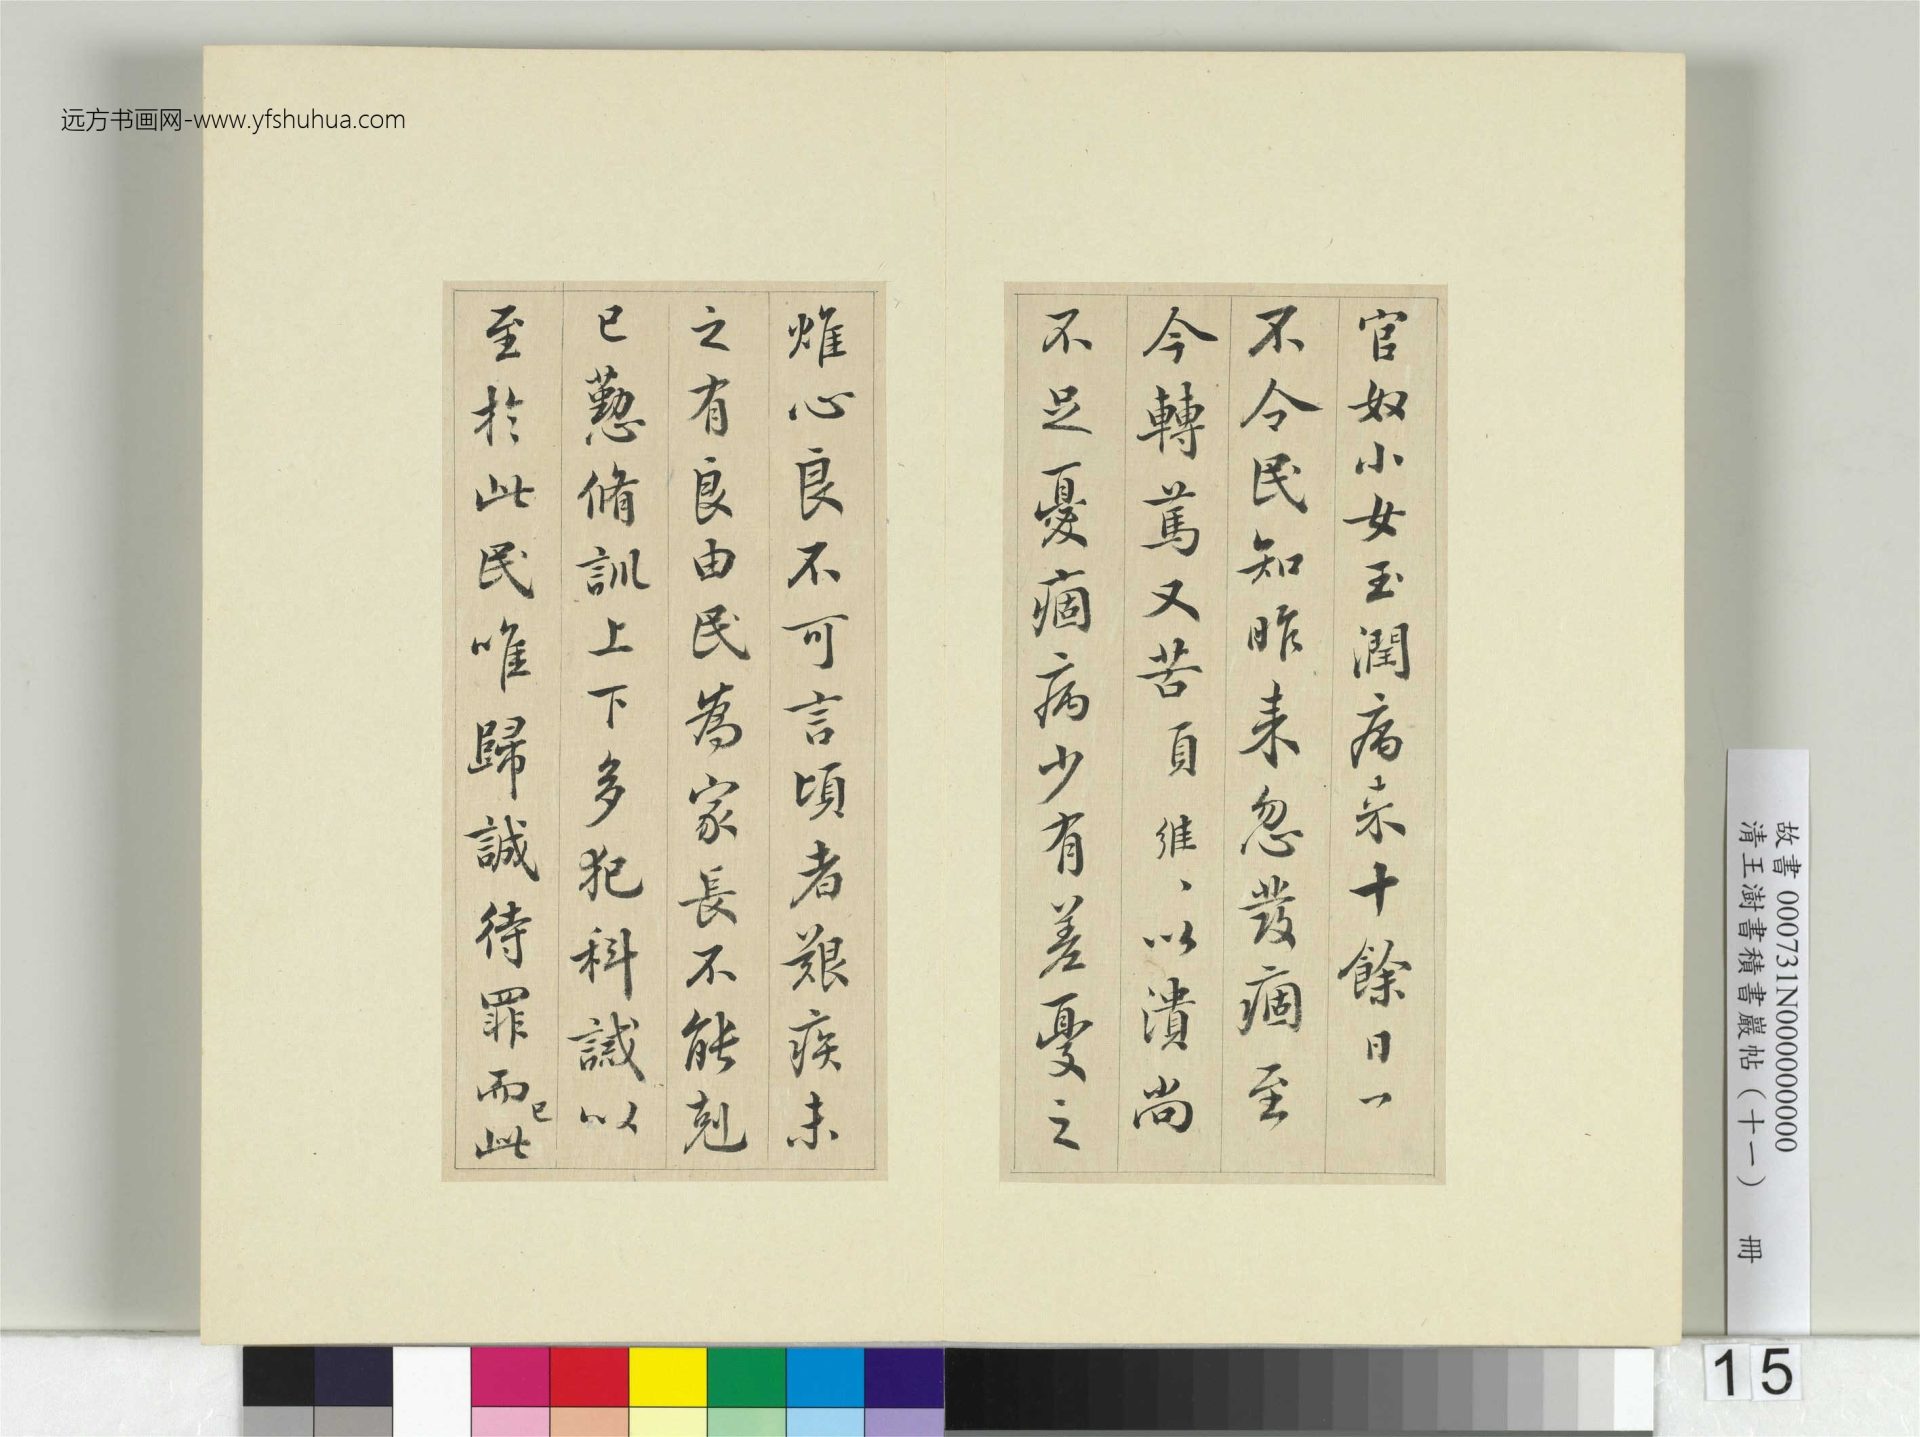 远方书画网-www.yfshuhua.com
官奴小女玉潤病来十餘日一
不令民知昨来忽發痼至
今轉篤又苦頭維、以潰尚
不足憂痼病少有差憂之
燋心良不可言頃者艱疾未
之有良由民為家長不能剋
己懃脩訓上下多犯科誡以
至於此民唯歸誠待罪而已此
故書 000731N000000000
清王澍書積書巖帖（十一） 冊
15